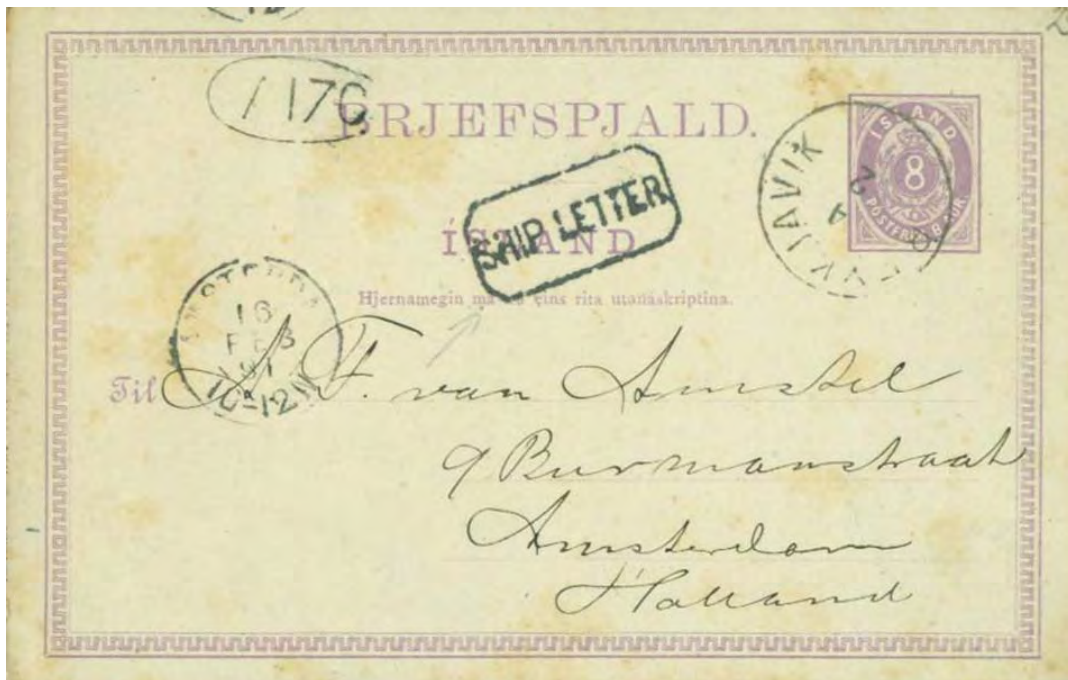 117C
BRJEFSPJALD.
ÍSLAND
8
PÓSTFRÍM. 8 AUR.
REYKJAVIK
2
SHIP LETTER
ÍSLAND
Hjernamegin má að eins rita utanáskriptina.
AMSTERDAM
16
FEB
91
10-12V
Til A. F. van Amstel
9 Burmanstraat
Amsterdam
Holland